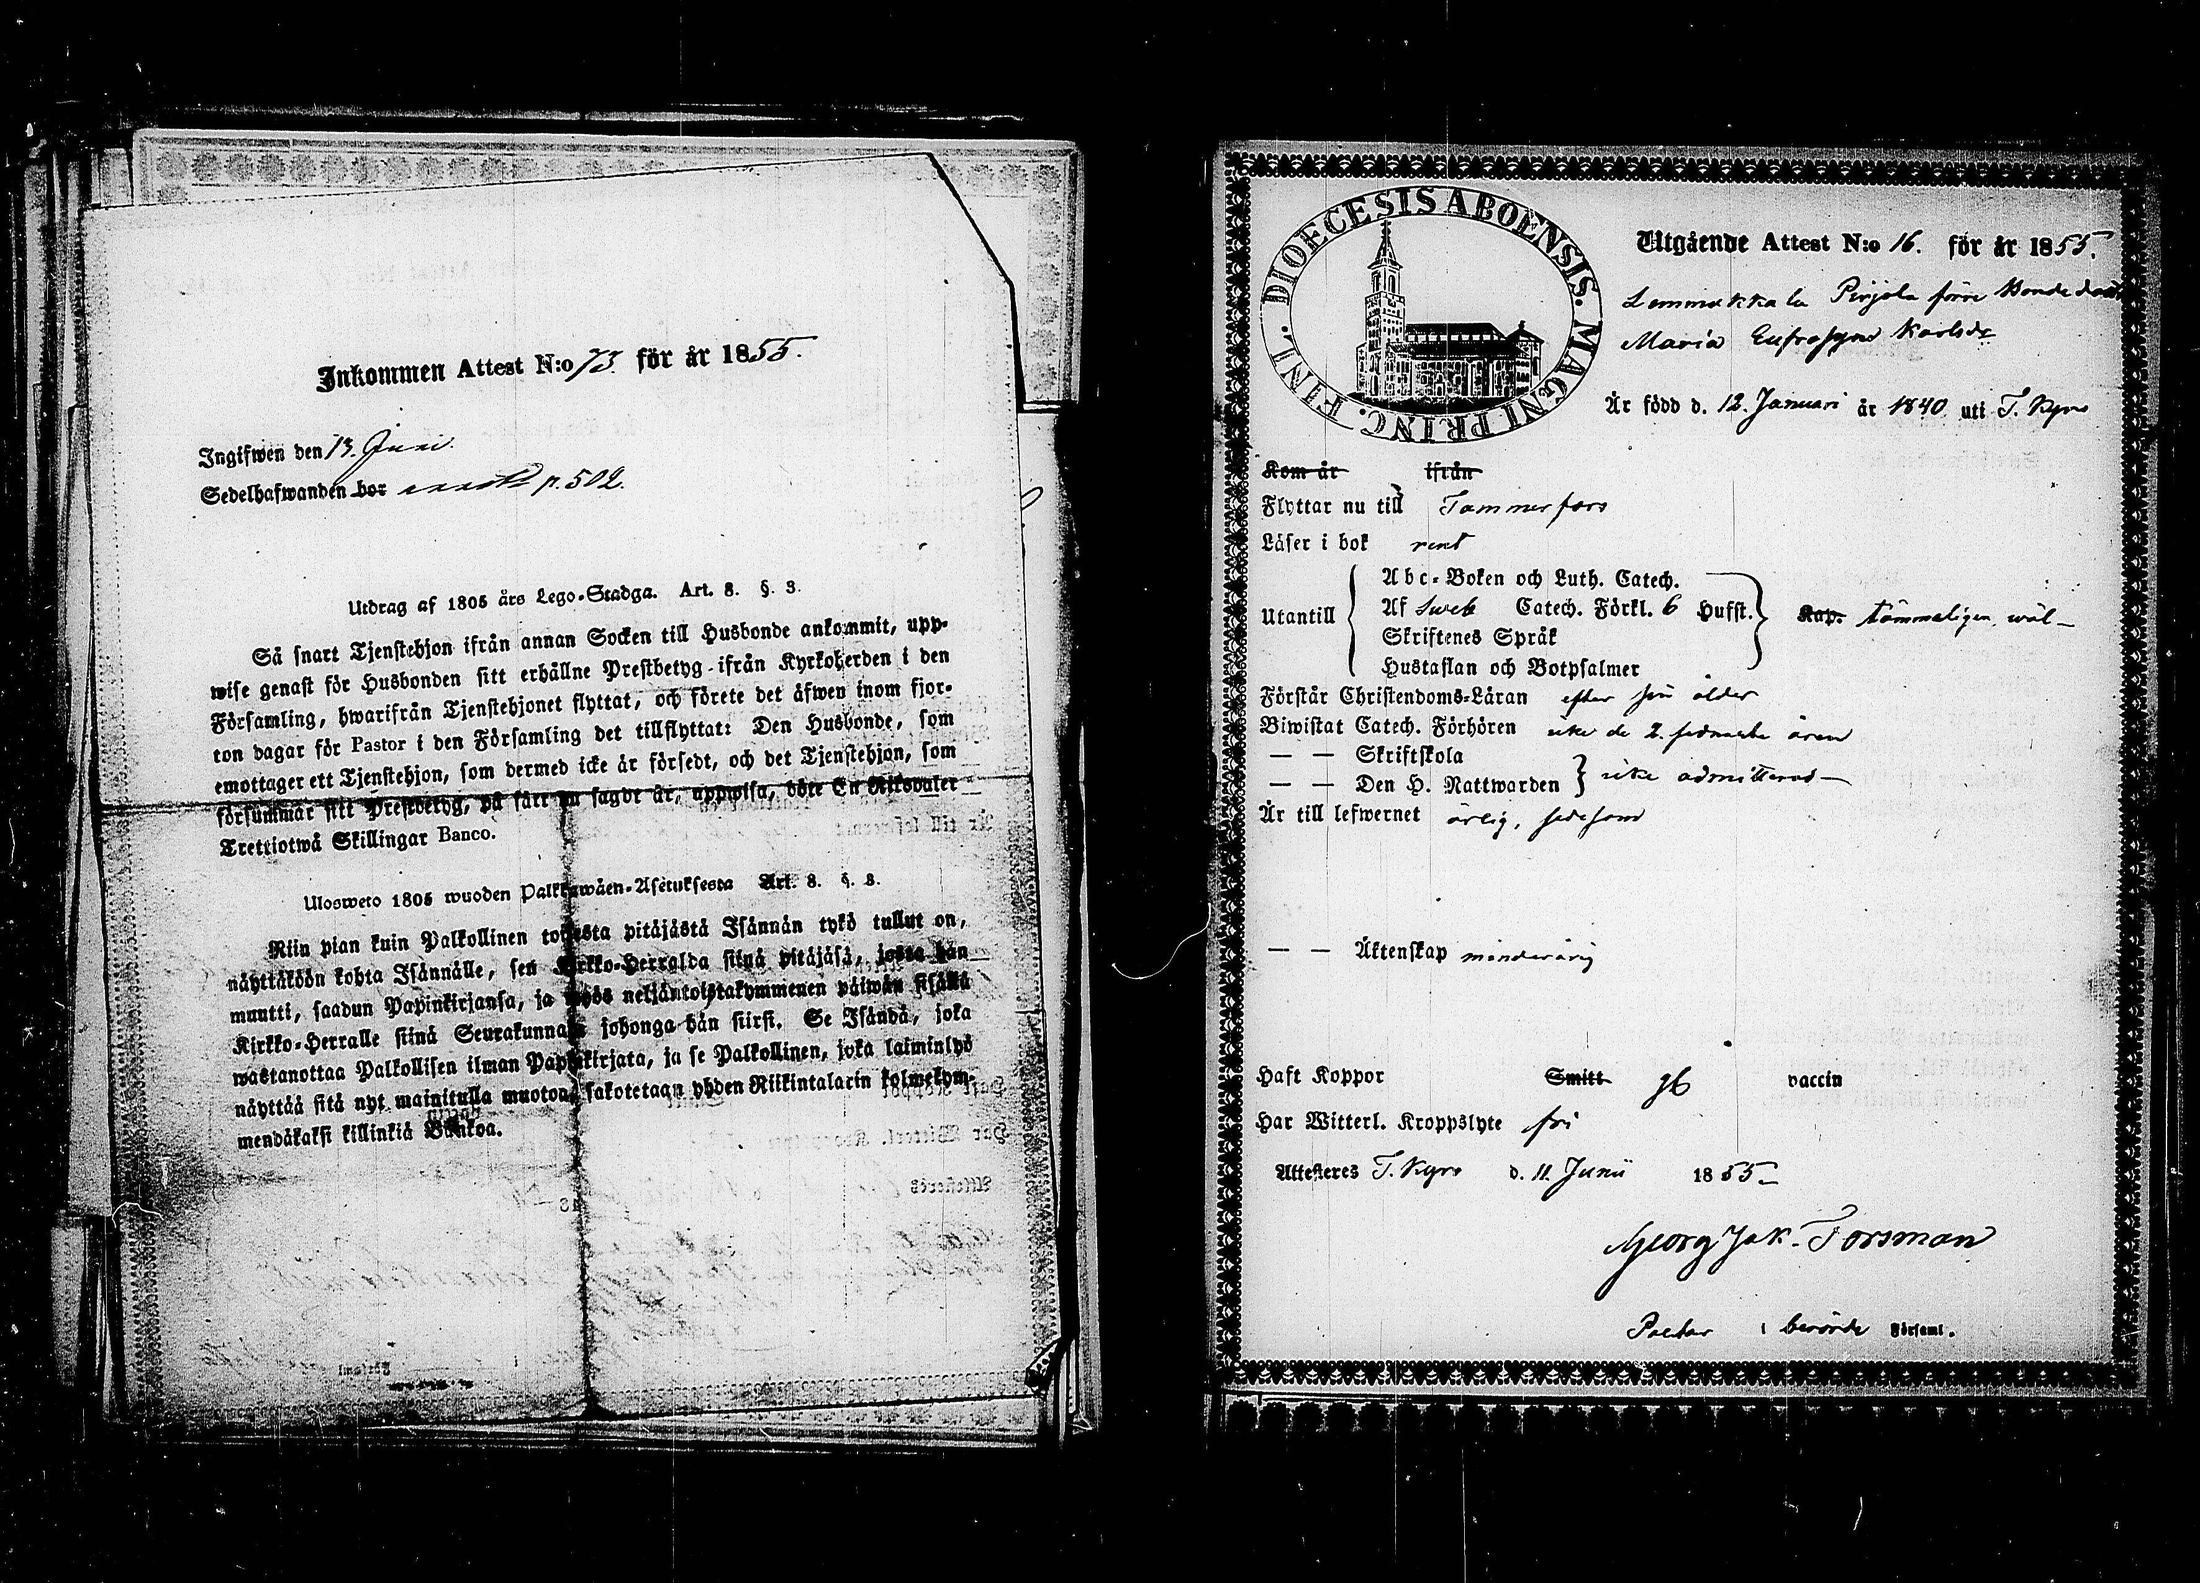 Inkommen Attest N:o 73. för år 1855.
Ingifwen den 13. Juni.
Sedelhafwanden bor p. 502.
Utdrag af 1805 års Lego-Stadga. Art. 8. §. 3.
Så snart Tjenstehjon ifrån annan Socken till Husbonde ankommit, upp-
wise genast för Husbonden sitt erhållne Prestbetyg ifrån Kyrkoherden i den
Församling, hwarifrån Tjenstehjonet flyttat, och förete det äfwen inom fjor-
ton dagar för Pastor i den Församling det tillflyttat: Den Husbonde, som
emottager ett Tjenstehjon, som dermed icke är försedt, och det Tjenstehjon, som
försummar sitt Prestbetyg, på sätt nu sagdt är, uppwisa, böte En Riksdaler
Trettiotwå Skillingar Banco.
Ulosweto 1805 wuoden Palkkawäen-Asetuksesta Art. 8. §. 3.
Niin pian kuin Palkollinen toisesta pitäjästä Isännän tykö tullut on,
näyttäköön kohta Isännälle, sen Kirkko-Herralda siinä pitäjäsä, josta hän
muutti, saadun Papinkirjansa, ja myös neljäntoistakymmenen päiwän sisällä
Kirkko-Herralle siinä Seurakunnasa johonga hän siirsi. Se Isändä, joka
wastanottaa Palkollisen ilman Papinkirjata, ja se Palkollinen, joka laiminlyö
näyttää sitä nyt mainitulla muotoa, sakotetaan yhden Riikintalarin kolmekym-
mendäkaksi killinkiä Bankoa.
DIOECESIS ABOENSIS. MAGNI PRINC. FINL.
Utgående Attest N:o 16. för år 1855.
Lemmakkala Pirjola förre Bonde dott.
Maria Eufrosyne Karlsdr
År född d. 12. Januari år 1840 uti T. Kyro
Kom år ifrån
Flyttar nu till Tammerfors
Läser i bok rent
Utantill
Abc-Boken och Luth. Catech.
Af Sweb Catech. Förkl. 6 Hufst. Kap. tämmeligen wäl
Skriftenes Språk
Hustaflan och Botpsalmer
Förstår Christendoms-Läran efter sin ålder
Biwistat Catech. Förhören icke de 2. sednaste åren
— — Skriftskola
— — Den H. Nattwarden icke admitterad
Är till lefwernet ärlig, sedesam
— — Äktenskap minderårig
Haft Koppor Smitt gb vaccin
Har Witterl. Kroppslyte fri
Attesteres T. Kyro d. 11. Junii 1855
Georg Jak. Forsman
Pastor i berörde Församl.